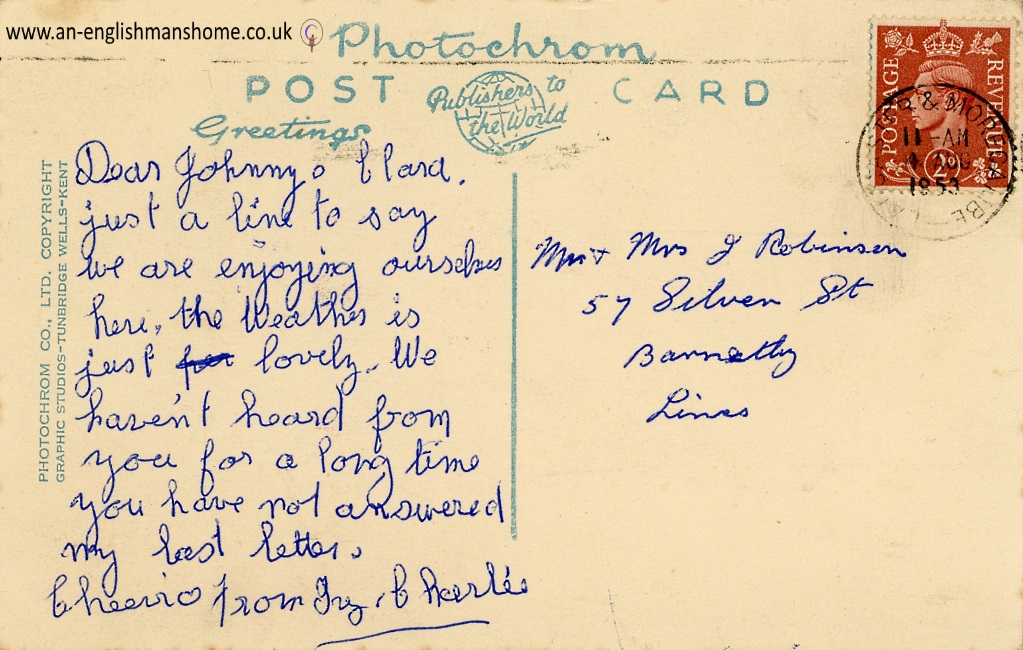 www.an-englishmanshome.co.uk
Photochrom
POST CARD
Publishers to
the World
Greetings
PHOTOCHROM CO., LTD. COPYRIGHT
GRAPHIC STUDIOS-TUNBRIDGE WELLS-KENT
Dear Johnny & Clara.
just a line to say
we are enjoying ourselves
here, the Weather is
just lovely. We
haven't heard from
you for a long time
you have not answered
my last letter.
Cheerio from Ivy. Charlie
Mr & Mrs J Robinson
57 Silver St
Barnetby
Lincs
POSTAGE REVENUE
2
& MORECAMBE
11-AM
AUG
1953